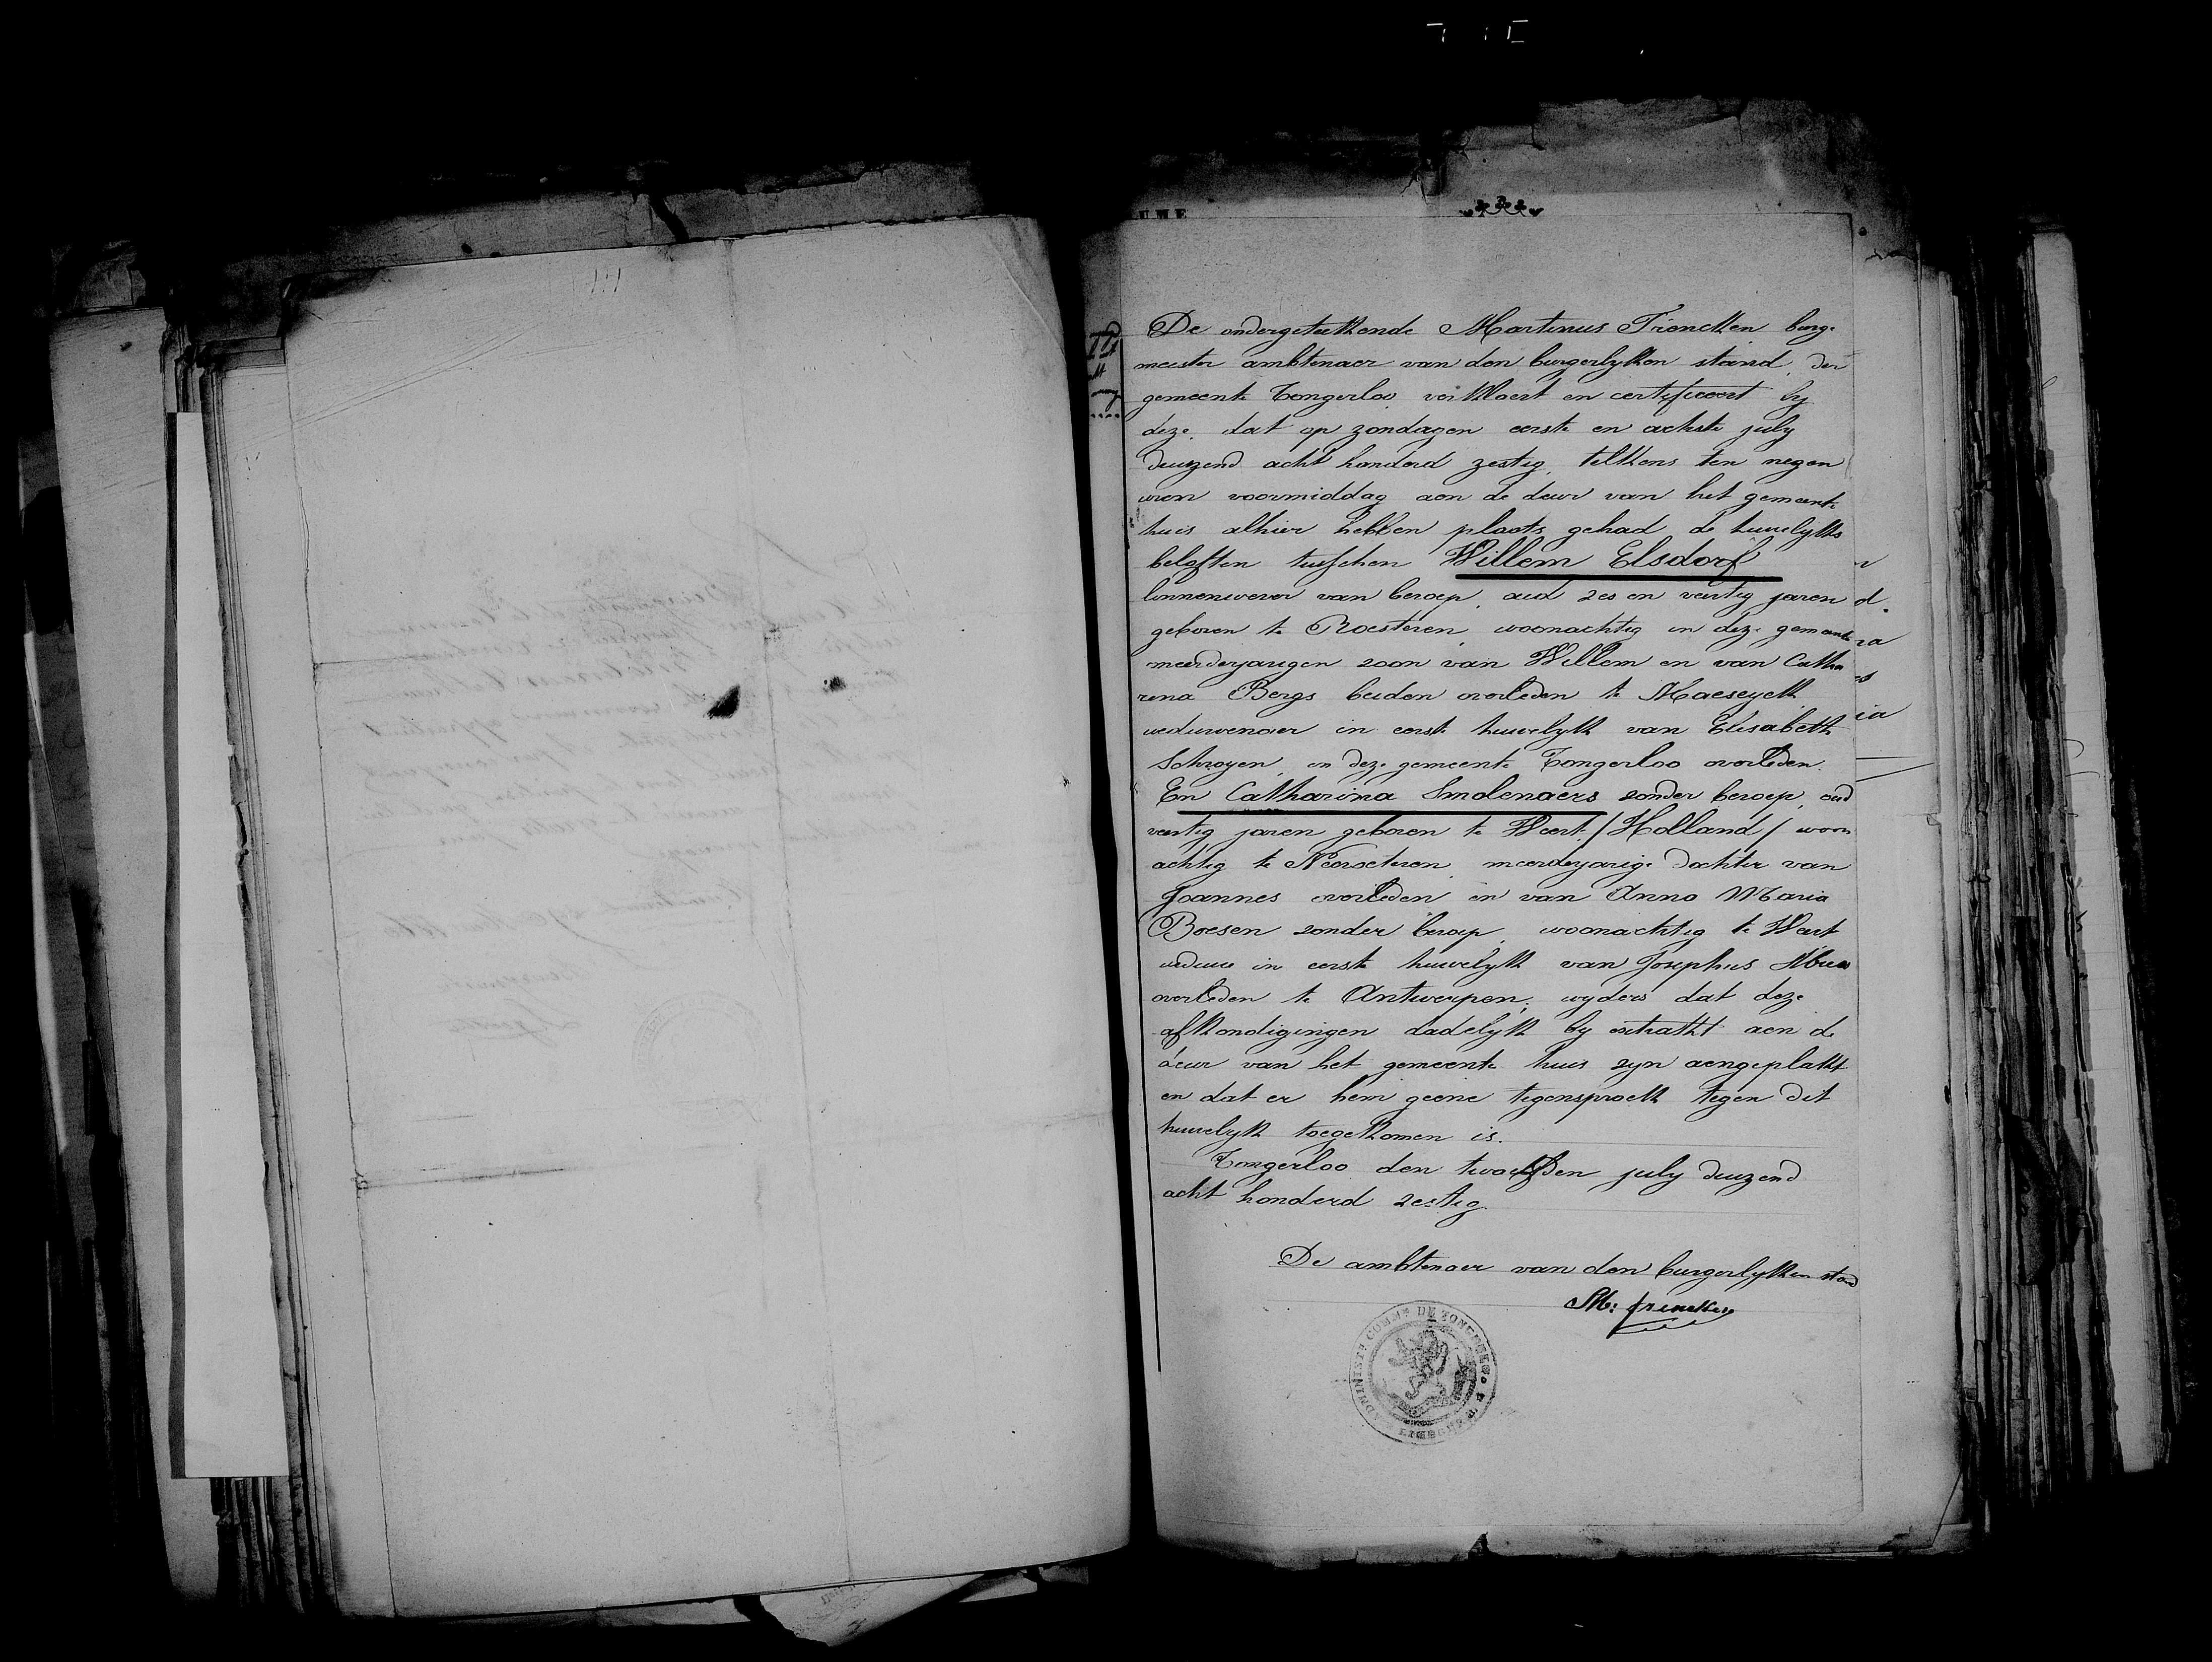 De ondergeteekende Martinus Triencken burge
meester ambtenaer van den burgerlyken stand, der
gemeente Tongerloo, verklaert en certificeert by
deze, dat op zondagen eerste en achste july
duizend acht honderd zestig, telkens ten negen
uren voormiddag aen de deur van het gemeente
huis alhier hebben plaats gehad de huwelyks
beloften tusschen Willem Elsdorf
linnenwever van beroep, oud zes en veertig jaren
geboren te Roosteren, woonachtig in deze gemeente
meerderjarigen zoon van Willem en van Catha
rina Bergs beiden overleden te Maeseyck
weduwenaer in eerste huwelyk van Elisabeth
Schroyen, in deze gemeente Tongerloo overleden.
En Catharina Smolenaers zonder beroep, oud
veertig jaren geboren te Weert /Holland/ woon
achtig te Neeroeteren, meerderjarige dochter van
Joannes overleden en van Anna Maria
Boesen zonder beroep, woonachtig te Weert
weduwe in eerste huwelyk van Josephus
overleden te Antwerpen; wyders dat deze
afkondigingen dadelyk by extrakt aen de
deur van het gemeente huis zyn aengeplakt
en dat er hem geene tegenspraek tegen dit
huwelyk toegekomen is.
Tongerloo den twaelfden july duizend
acht honderd zestig
De ambtenaer van den burgerlyken stand
M: Triencken
ADMINISTN COMMLE DE TONGERLOO
LIMBOURG